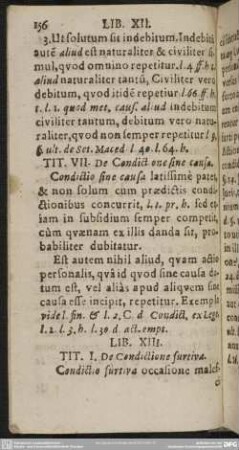 156 LIB. XII.
3. Ut solutum sit indebitum. Indebitũ
autẽ aliud est naturaliter & civiliter si-
mul, quod omnino repetitur. l. 4. ff. h.
aliud naturaliter tantũ, Civiliter vero
debitum, quod itidẽ repetiur l. 66. ff. h.
t. l. 1. quod met. caus. aliud indebitum
civiliter tantum, debitum vero natu-
raliter, quod non semper repetitur l. 9.
§. ult. de Set. Maced l. 40. l. 64. h.
TIT. VII. De Condict one sine causa.
Condictio sine causa latissimè patet,
& non solum cum prædictis condi-
ctionibus concurrit, l. 1. pr. h. sed et-
iam in subsidium semper competit,
cùm quænam ex illis danda sit, pro-
babiliter dubitatur.
Est autem nihil aliud, quam actio
personalis, quâ id quod sine causa da-
tum est, vel aliàs apud aliquem sine
causa esse incipit, repetitur. Exempla
vide l. fin. & l. 2. C. d Condict. ex Lege
l. 2. l. 3. h. l. 30 d act. empt.
LIB. XIII.
TIT. I. De Condictione furtiva.
Condictio furtiva occasione malef-